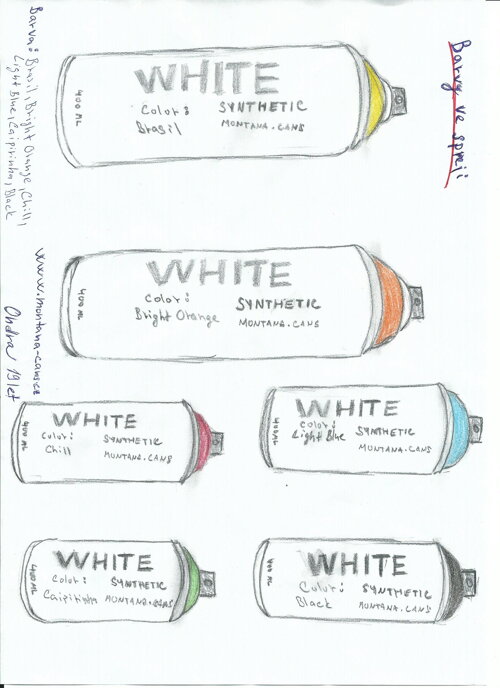 Barvy ve spreji
Barva: Brasil, Bright Orange, Chill,
Light Blue, Caipirinha, Black
www.montana-cans.cz
Ondra 19 let
400 ML
WHITE
Color:
Brasil
SYNTHETIC
MONTANA.CANS
400 ML
WHITE
Color:
Bright Orange
SYNTHETIC
MONTANA.CANS
400 ML
WHITE
Color:
Chill
SYNTHETIC
MONTANA.CANS
400 ML
WHITE
Color:
Light Blue
SYNTHETIC
MONTANA.CANS
400 ML
WHITE
Color:
Caipirinha
SYNTHETIC
MONTANA.CANS
400 ML
WHITE
Color:
Black
SYNTHETIC
MONTANA.CANS